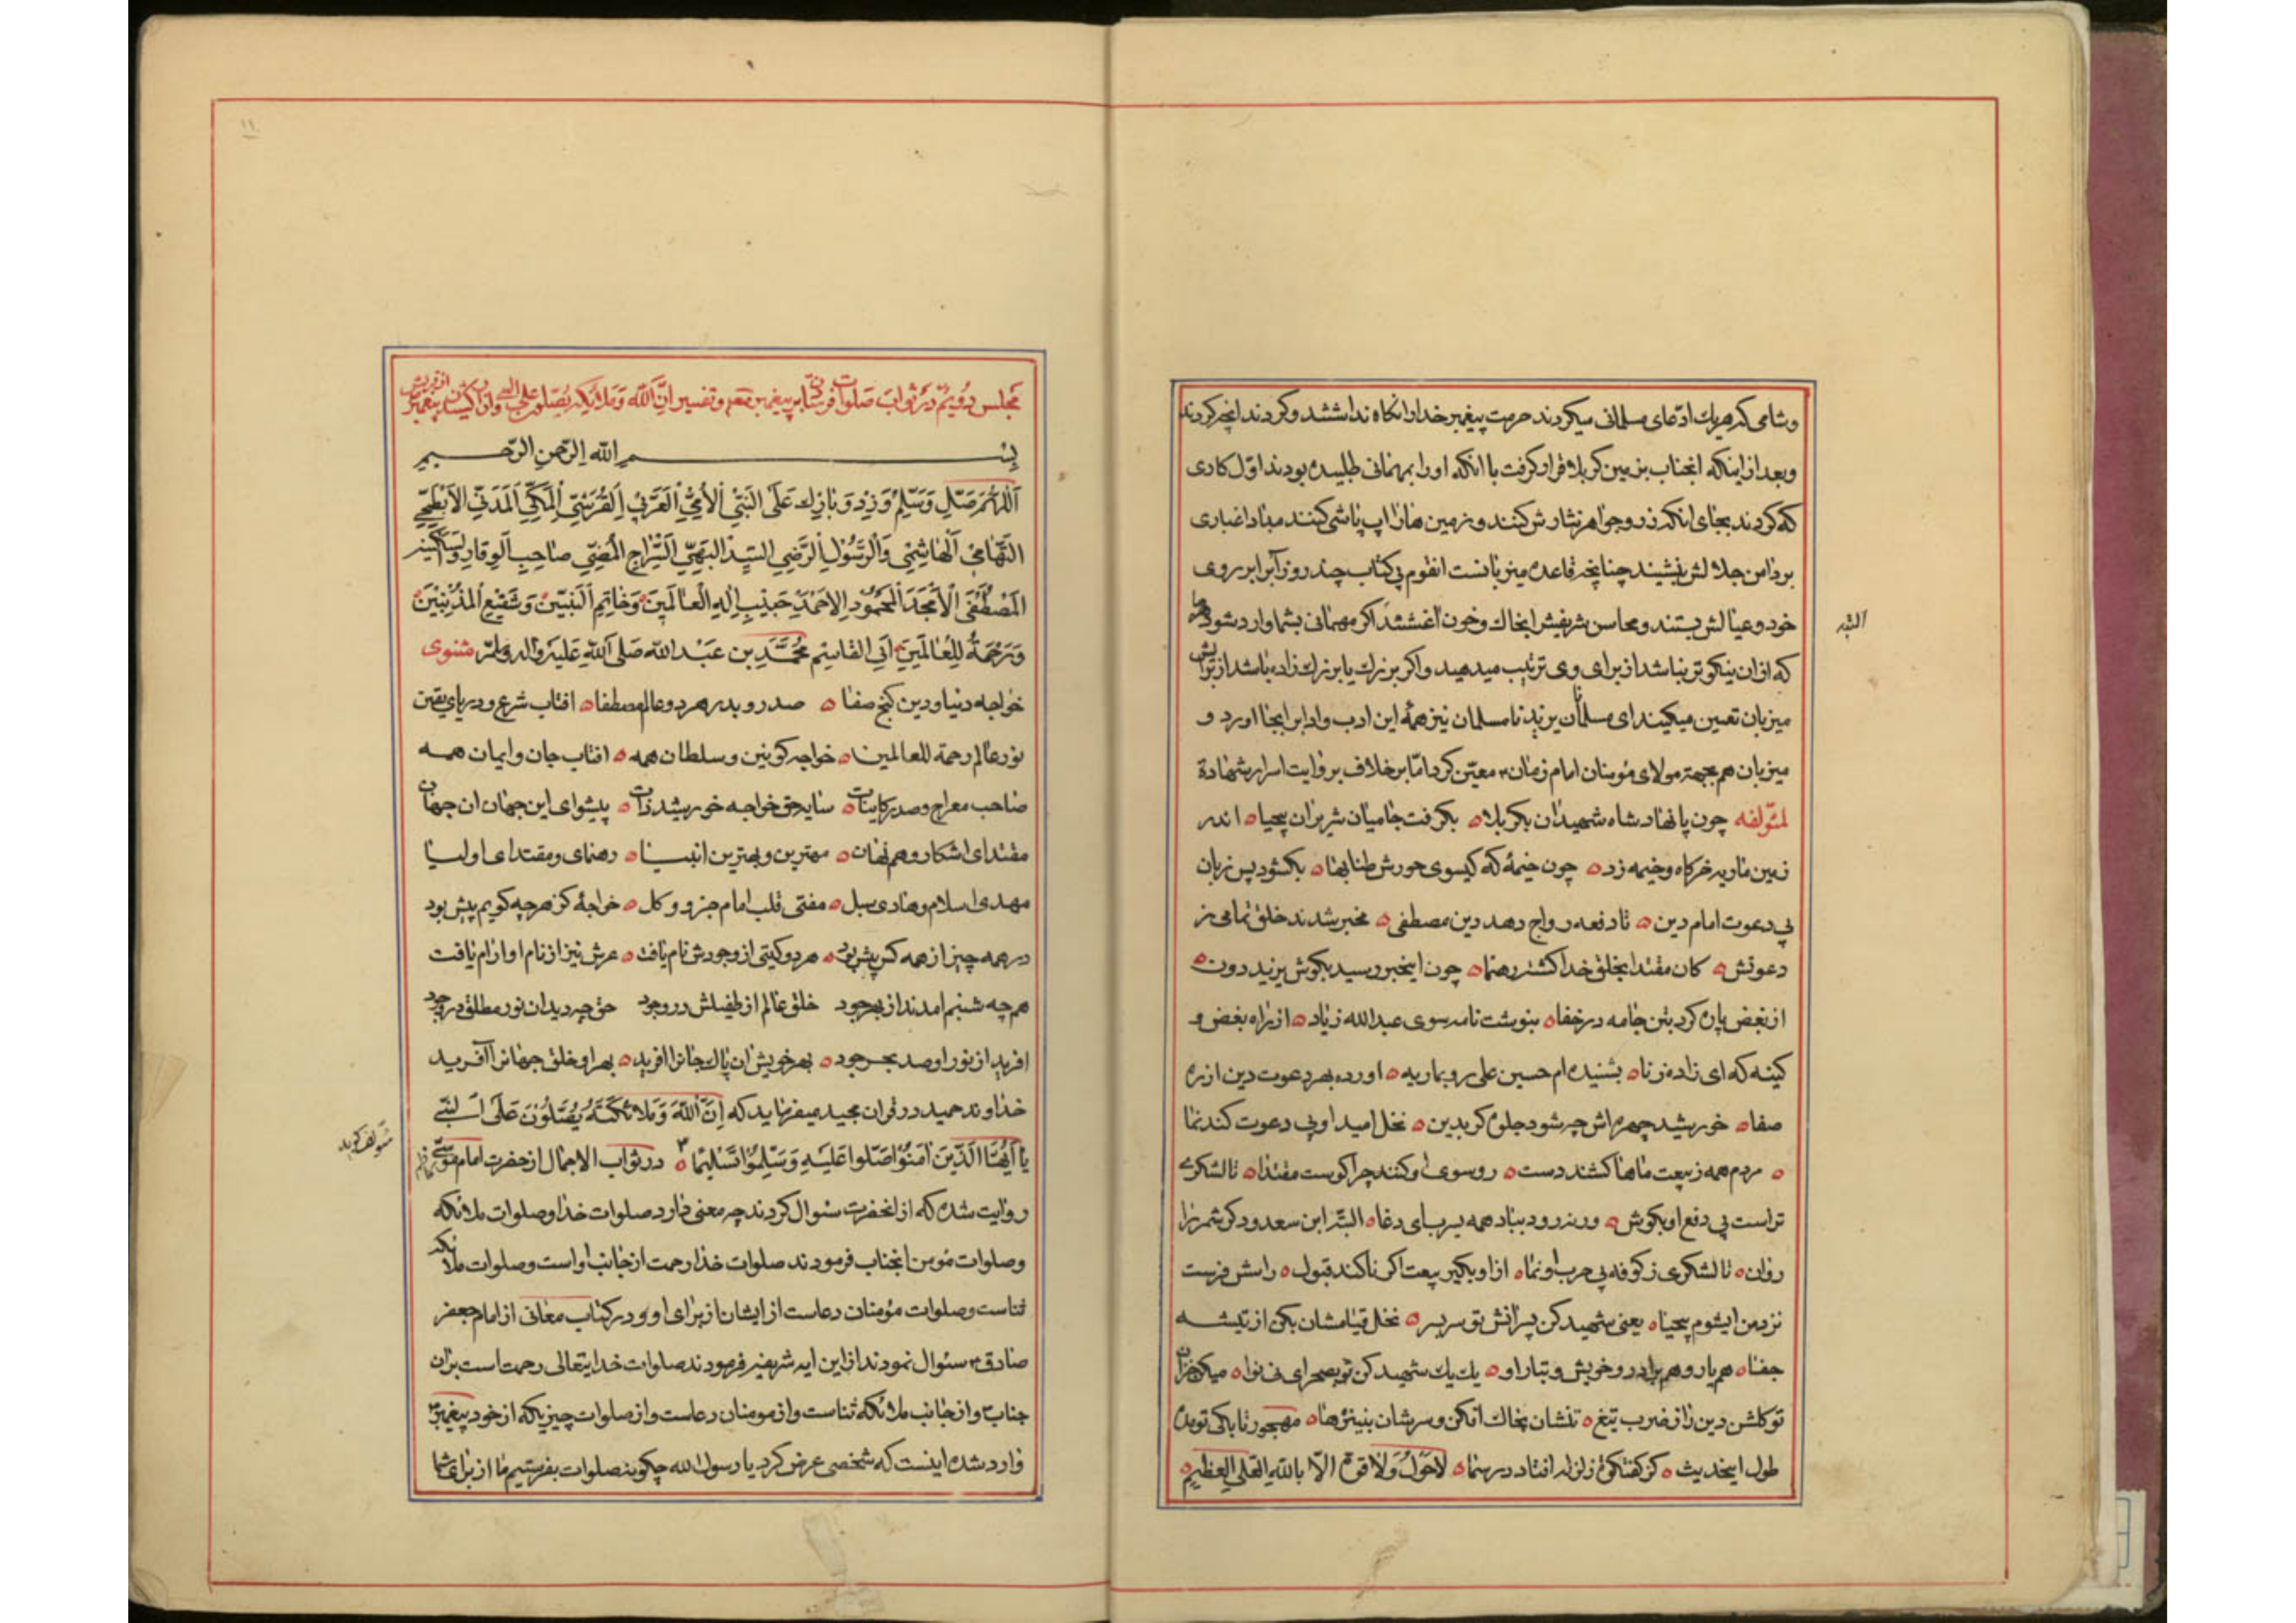 وشامی که هریك ادّعای مسلمانی میکردند حرمت پیغمبر خدا را نکاه نداشتند و کردند انچه کردند
وبعد از اینکه انجناب بزمین کربلا قرار کرفت با انکه او را بمهمانی طلبیده بودند اوّل کاری
که کردند بجای انکه زر و جواهر نثارش کنند و زمین ها را اپ پاشی کنند مبادا غباری
بر دامن جلالش نشیند چنانچه قاعده میزبانست انقوم بی کتاب چند روز آبرا بر روی
خود و عیالش بستند و محاسن شریفش بخاك و خون اغشتند اکر مهمانی بشما وارد شود
که از ان نیکوتر نباشد از برای وی ترتیب میدهید و اکر بزرك یا بزرك زاده باشد از برایش
میزبان تعیین میکیند ای مسلمانان یزید نامسلمان نیز همهٔ این ادب و اداب را بجا اورد و
میزبان هم بجهة مولای مؤمنان امام زمان معیّن کرد امّا بر خلاف بروایت اسرار شهادة
لمؤلفه چون پا نهاد شاه شهیدان بکربلا بکرفت جا میان شریران بیحیا اندر
زمین ماریه خرکاه و خیمه زد چون خیمهٔ که کیسوی حورش طنابها بکشود پس زبان
پی دعوت امام دین تا دفعه رواج دهد دین مصطفی مخبر شدند خلق تمامی ز
دعوتش کان مقتدا بخلق خدا کشته رهنما چون اینخبر رسید بکوش یزید دون
از بغض پاره کرد بتن جامه در خفا بنوشت نامه سوی عبدالله زیاد از راه بغض و
کینه که ای زاده زنا بشنیده ام حسین علی رو بماریه اورده بهر دعوت دین از ره
صفا خورشید چهره اش چه شود جلوه کر بدین نخل امید او پی دعوت کند نما
مردم همه ز بیعت ماها کشند دست رو سوی او کنند چرا کوست مقتدا تا لشکری
تراست پی دفع او بکوش ورنه رود بباد همه سر بپای دغا البتّه ابن سعد و دکر شمر را
روان تا لشکری ز کوفه پی حرب او نما از او بکیر بیعت اکر ناکند قبول راسش فرست
نزد من ایشوم بیحیا یعنی شهید کن پسرانش تو سربسر نخل قیامشان بکن از تیشه
جفا هم یار و هم برادر و خویش و تبار او یك یك شهید کن تو بصحرای نینوا میکن خزان
تو کلشن دین را ز ضرب تیغ تنشان بخاك افکن و سرشان بنیزه ها مهجور تا بکی تو بده
طول اینحدیث کز کفتکوی زلزله افتاد در سما لاحول ولا قوة الّا بالله العلی العظیم
البتّه
۱۱
مجلس دویّم در ثواب صلوات فرستادن بر پیغمبر و تفسیر انّ الله وملائکته یصلون علی النبی
بسم الله الرّحمن الرّحیم
اَللّهُمَّ صَلِّ وَسَلِّمْ وَزِدْ وَبَارِك عَلَی النَبّیِ الْاُمّیِّ الْعَرَبیِّ اِلقُرَشیِّ المَکّیِّ اَلْمَدَنیِّ الْاَبْطَحیِّ
التِّهامیِّ الْهاشِمیِّ وَالرَّسُوْلِ الرَّضِیِ السَیِّدْ البَهیِّ السِّراجِ الْمُضیِّ صاحِبِ الْوِقارِ وَالسَّکینه
المُصْطَفَی الاَمْجَدَ الْمَحْمُوْدِ الاَحْمَدْ حَبیْبِ اِلهِ الْعالَمینَ وَخاتِمِ النَبیّینَ وَشَفیْعِ المُذْنِبیْنَ
وَرَحْمَةً لِلْعالَمیْنَ اَبِی القاسِمِ مُحَمَّدِ بن عَبْد الله صَلی اللهِ عَلَیْهِ وَآله وسلمّ مثنوی
خواجه دنیا و دین کنج صفا صدر و بدر هر دو عالم مصطفا افتاب شرع و دریای یقین
نور عالم رحمة للعالمین خواجه کونین و سلطان همه افتاب جان و ایمان همه
صاحب معراج و صدر کاینات سایه حق خواجه خورشید ذات پیشوای این جهان ان جهان
مقتدای اشکار و هم نهان مهترین و بهترین انبیا رهنمای و مقتدای اولیا
مهدی اسلام و هادی سبل مفتی قلب امام جزو و کل خواجهٔ کز هرچه کویم پیش بود
در همه چیز از همه کس پیش بود هر دو کیتی از وجودش نام یافت عرش نیز از نام او ارام یافت
همچه شبنم امدند از بحر جود خلق عالم از طفیلش در وجود حق چه دید ان نور مطلق در وجود
افرید از نور او صد بحر جود بهر خویش ان پاك جانرا افرید بهر او خلق جهانرا آفرید
خداوند حمید در قران مجید میفرماید که اِنَّ اللهَ وَمَلائِکَتَهُ یُصَّلُوْنَ عَلَی النَبّیِ
یا اَیُّهَا الَّذیْنَ امَنُوْا صَلُوا عَلَیْهِ وَسَلِمُوْا تَسْلیْمَا در ثواب الاعمال از حضرت امام موسی کاظم
روایت شده که از انحضرت سئوال کردند چه معنی دارد صلوات خدا و صلوات ملائکه
وصلوات مؤمن انجناب فرمودند صلوات خدا رحمت از جانب او است و صلوات ملائکه
ثناست و صلوات مؤمنان دعاست از ایشان از برای او و در کتاب معانی از امام جعفر
صادق سئوال نمودند از این ایه شریفه فرمودند صلوات خدایتعالی رحمت است بران
جناب و از جانب ملائکه ثناست و از مومنان دعاست و از صلوات چیزیکه از خود پیغمبر
وارد شده اینست که شخصی عرض کرد یا رسول الله چکونه صلوات بفرستیم ما از برای شما